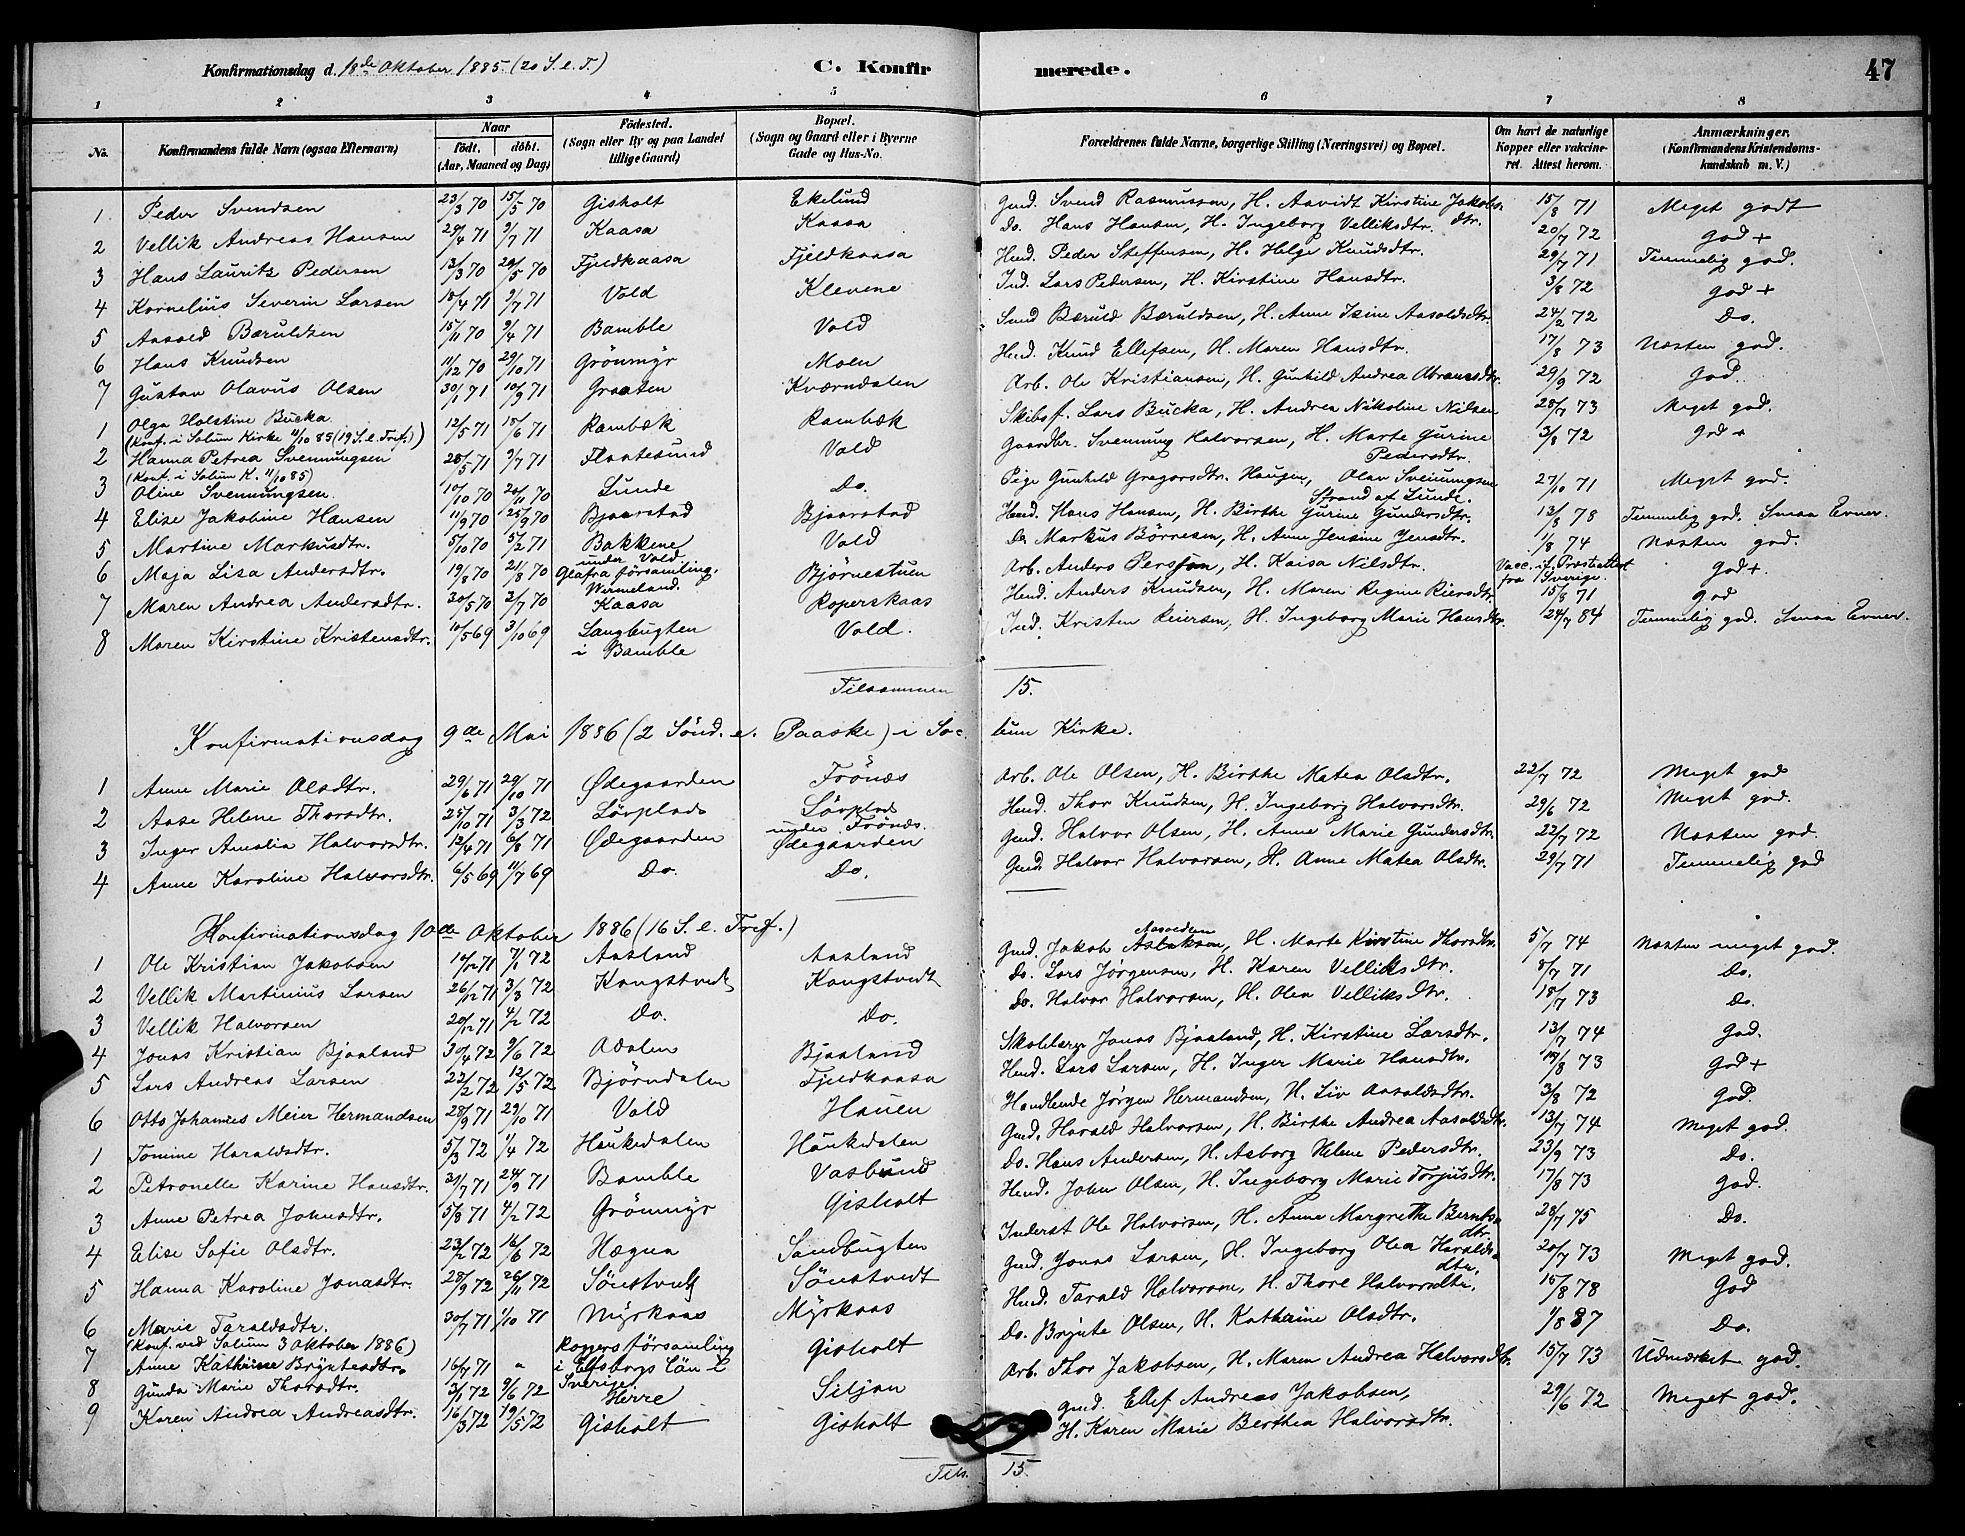 Konfirmationsdag d. 18de Oktober 1885 (20 S. e. T.) C. Konfir merede. 47
1 2 3 4 5 6 7 8
No. Konfirmandens fulde Navn (ogsaa Efternavn) Naar födt. döbt. (Aar, Maaned og Dag) Födested. (Sogn eller By og paa Landet tillige Gaard) Bopæl. (Sogn og Gaard eller i Byerne Gade og Hus-No. Forældrenes fulde Navne, borgerlige Stilling (Næringsvei) og Bopæl. Om havt de naturlige Kopper eller vakcineret. Attest herom. Anmærkninger. (Konfirmandens Kristendomskundskab m. V.)
1 Peder Svendsen 23/3 70 15/5 70 Gisholt Ekelund Gmd. Svend Rasmussen, H. Aavidt Kirstine Jakobsdtr. 15/8 71 Meget godt
2 Vellik Andreas Hansen 29/4 71 9/7 71 Kaasa Kaasa Do. Hans Hansen, H. Ingeborg Velliksdtr. 20/7 72 God +
3 Hans Lauritz Pedersen 13/3 70 29/5 70 Fjeldkaasa Fjeldkaasa Hmd. Peder Steffensen, H. Helge Knudsdtr. 29/7 71 Temmelig god.
4 Kornelius Severin Larsen 18/4 71 9/7 71 Vold Klevene Ind. Lars Pedersen, H. Kirstine Hansdtr. 3/8 72 God +
5 Aasold Bæruldsen 15/11 70 9/4 71 Bamble Vold Bæruld Bæruldsen, H. Anne Isine Aasoldsdtr. 24/2 72 Do.
6 Hans Knudsen 11/12 70 29/10 71 Grönmyr Moen Hmd. Knud Ellefsen, H. Maren Hansdtr. 17/8 73 Næsten god.
7 Gustav Olavus Olsen 30/1 71 10/9 71 Graaten Kværndalen Arb. Ole Kristiansen, H. Gunhild Andrea Abramsdtr. 29/9 72 God.
1 Olga Holstine Bucka 12/5 71 18/6 71 Rambæk Rambæk Skibsf. Lars Bucka, H. Andrea Nikoline Nilsen 28/7 73 Meget god.
(Konf. i Solum Kirke 11/10 85 (19 S. e. Tref.))
2 Hanna Petrea Svennungsen 28/5 71 9/7 71 Flaatesund Vold Gaardbr. Svennung Halvorsen, H. Marte Gurine Pedersdtr. 3/8 72 God +
(Konf. i Solum K. 11/10 85)
3 Oline Svennungsen. 10/10 70 20/11 70 Lunde Do. Pige Gunhild Gregarsdtr. Haugen, Olav Svennungsen Strand af Lunde. 27/10 71 Meget god.
4 Elise Jakobine Hansen 11/9 70 25/9 70 Bjaarstad Bjaarstad Hmd. Hans Hansen, H. Birthe Gurine Gundersdtr. 13/8 78 Temmelig god. Smaa Evner.
5 Martine Markusdtr. 5/10 70 5/2 71 Bakkene under Vold Vold Do. Markus Börresen, H. Anne Jensine Jensdtr. 1/8 74 Næsten god.
6 Maja Lisa Andersdtr. 19/8 70 21/8 70 Glafva församling. Wermeland. Bjørnestuen Arb. Anders Persson, H. Kaisa Nilsdtr. Vacc. if. Præstattest fra Sverige. God +.
7 Maren Andrea Andersdtr. 30/5 70 3/7 70 Kaasa Roperskaas Hmd. Anders Knudsen, H. Maren Regine Reiersdtr. 15/8 71 God
8 Maren Kirstine Kristensdtr. 10/5 69 3/10 69 Langbugten i Bamble Vold. Ind. Kristen Reiersen, H. Ingeborg Marie Hansdtr. 24/7 84 Temmelig god. Smaa Evner.
Tilsammen 15.
Konfirmationsdag 9de Mai 1886 (2 Sönd. e. Paaske) i Solum Kirke.
1 Anne Marie Olsdtr. 29/6 71 29/10 71 Ødegaarden Frönæs Arb. Ole Olsen, H. Birthe Matea Olsdtr. 22/7 72 Meget god
2 Aase Helene Thorsdtr. 25/10 71 3/3 72 Lörplads Lörplads under Frönæs. Hmd. Thor Knudsen, H. Ingeborg Halvorsdtr. 29/6 72 Meget god.
3 Inger Amalia Halvorsdtr. 12/4 71 6/8 71 Ødegaarden Ødegaarden Gmd. Halvor Olsen, H. Anne Marie Gundersdtr. 22/7 72 Næsten god.
4 Anne Karoline Halvorsdtr. 6/5 69 11/7 69 Do. Do. Gmd. Halvor Halvorsen, H. Anne Matea Olsdtr. 29/7 71 Temmelig god
Konfirmationsdag 10de Oktober 1886 (16 S. e. Tref.)
1 Ole Kristian Jakobsen 14/12 71 7/1 72 Aasland Aasland Gmd. Jakob Aslaksen, H. Marte Kirstine Thorsdtr. 5/7 74 Næsten meget god.
2 Vellik Martinius Larsen 26/12 71 3/3 72 Kongstvedt Kongstvedt Do. Lars Jørgensen, H. Karen Velliksdtr. 8/7 71 Do.
3 Vellik Halvorsen 20/12 71 4/2 72 Do. Do. Do. Halvor Halvorsen, H. Olea Velliksdtr. 18/7 73 Do.
4 Jonas Kristian Bjaaland 30/4 72 9/6 72 Aadalen Bjaaland Skolelærer Jonas Bjaaland, H. Kirstine Larsdtr. 13/7 74 God.
5 Lars Andreas Larsen 22/2 72 12/5 72 Bjørndalen Fjeldkaasa Hmd. Lars Larsen, H. Inger Marie Hansdtr. 19/8 73 God +
6 Otto Johannes Meier Hermandsen 28/9 71 29/10 71 Vold Hauen Handlende Jörgen Hermandsen, H. Liv Aasoldsdtr. 3/8 72 God.
1 Tomine Haraldsdtr. 5/3 72 1/4 72 Haukedalen Haukedalen Gmd. Harald Halvorsen, H. Birthe Andrea Aasoldsdtr. 13/7 74 Meget god.
2 Petronelle Karine Hansdtr. 21/7 71 24/9 71 Bamble Vasbund Do. Hans Andersen, H. Asborg Helene Pedersdtr. 23/9 73 Do.
3 Anne Petrea Johnsdtr. 5/8 71 4/2 72 Grönmyr Gisholt Hmd. John Olsen, H. Ingeborg Marie Torjusdtr. 17/8 73 God.
4 Elise Sofie Olsdtr. 23/2 72 16/6 72 Hægna Sandbugten Inderst Ole Halvorsen, H. Anne Margrethe Berntsdtr. 28/7 75 Do.
5 Hanna Karoline Jonasdtr. 28/9 72 26/11 72 Sönstvedt Sönstvedt Gmd. Jonas Larsen, H. Ingeborg Olea Haraldsdtr. 20/7 73 Meget god.
6 Marie Taraldsdtr. 30/7 71 1/10 71 Myrkaas Myrkaas Hmd. Tarald Halvorsen, H. Thore Halvorsdtr. 15/8 78 God
(Konf. ved Solum 3 Oktober 1886)
7 Anne Kathrine Bryntesdtr. 16/7 71 " församling i Elfsborgs Län Sverige Gisholt Do. Brynte Olsen, H. Kathrine Olsdtr. 1/8 87 Do.
8 Gunda Marie Thorsdtr. 3/1 72 9/6 72 Herre Siljan Arb. Thor Jakobsen, H. Maren Andrea Halvorsdtr. 15/7 73 Udmærket god.
9 Karen Andrea Andreasdtr. 16/3 72 19/5 72 Gisholt Gisholt Gmd. Ellef Andreas Jakobsen, H. Karen Marie Berthea Halvorsdtr. 29/6 72 Meget god.
Tils. 15.